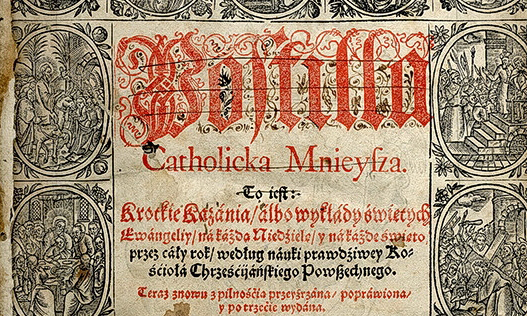 Postilla
Catholicka Mnieysza.
To iest:
Krotkie Kazánia/ álbo wykłády świętych
Ewángeliy/ ná káżdą Niedzielę/ y ná káżde święto
przez cáły rok/ według náuki prawdźiwey Ko-
śćiołá Chrześćijáńskiego Powszechnego.
Teraz znowu z pilnośćią przeyźrzána/ popráwiona/
y po trzećie wydána.